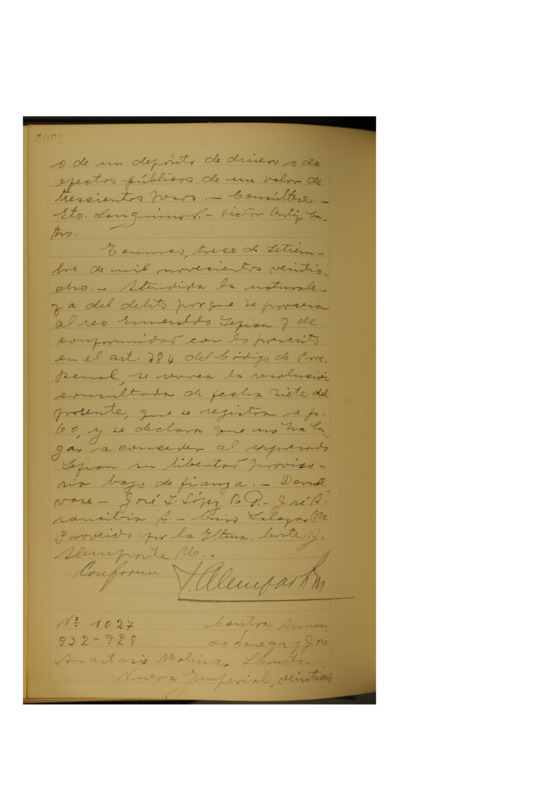 o de un depósito de dinero o de
efectos públicos de un valor de
trescientos pesos. — Consúltese. —
Eto. Sanguino S. — Victor Ortiz Cas-
tro. —
Temuco, trece de Setiem-
bre de mil novecientos veintio-
cho. — Atendida la naturale-
za del delito porque se procesa
al reo Esmeraldo Sepian y de
conformidad con lo prescrito
en el art. 384 del Código de Proc.
Penal, se revoca la resolución
consultada de fecha siete del
presente, que se registra a fs.
60, y se declara que no ha lu-
gar a conceder al expresado
Sepian su libertad proviso-
ria bajo de fianza. —
José L. López
Proveido por la Iltma. Corte. J.
Alemparte M..
Conforme
J. Alemparte M.
Nº 1027 Contra
932-928 y José
Anastasio Molina,
Nueva Imperial,